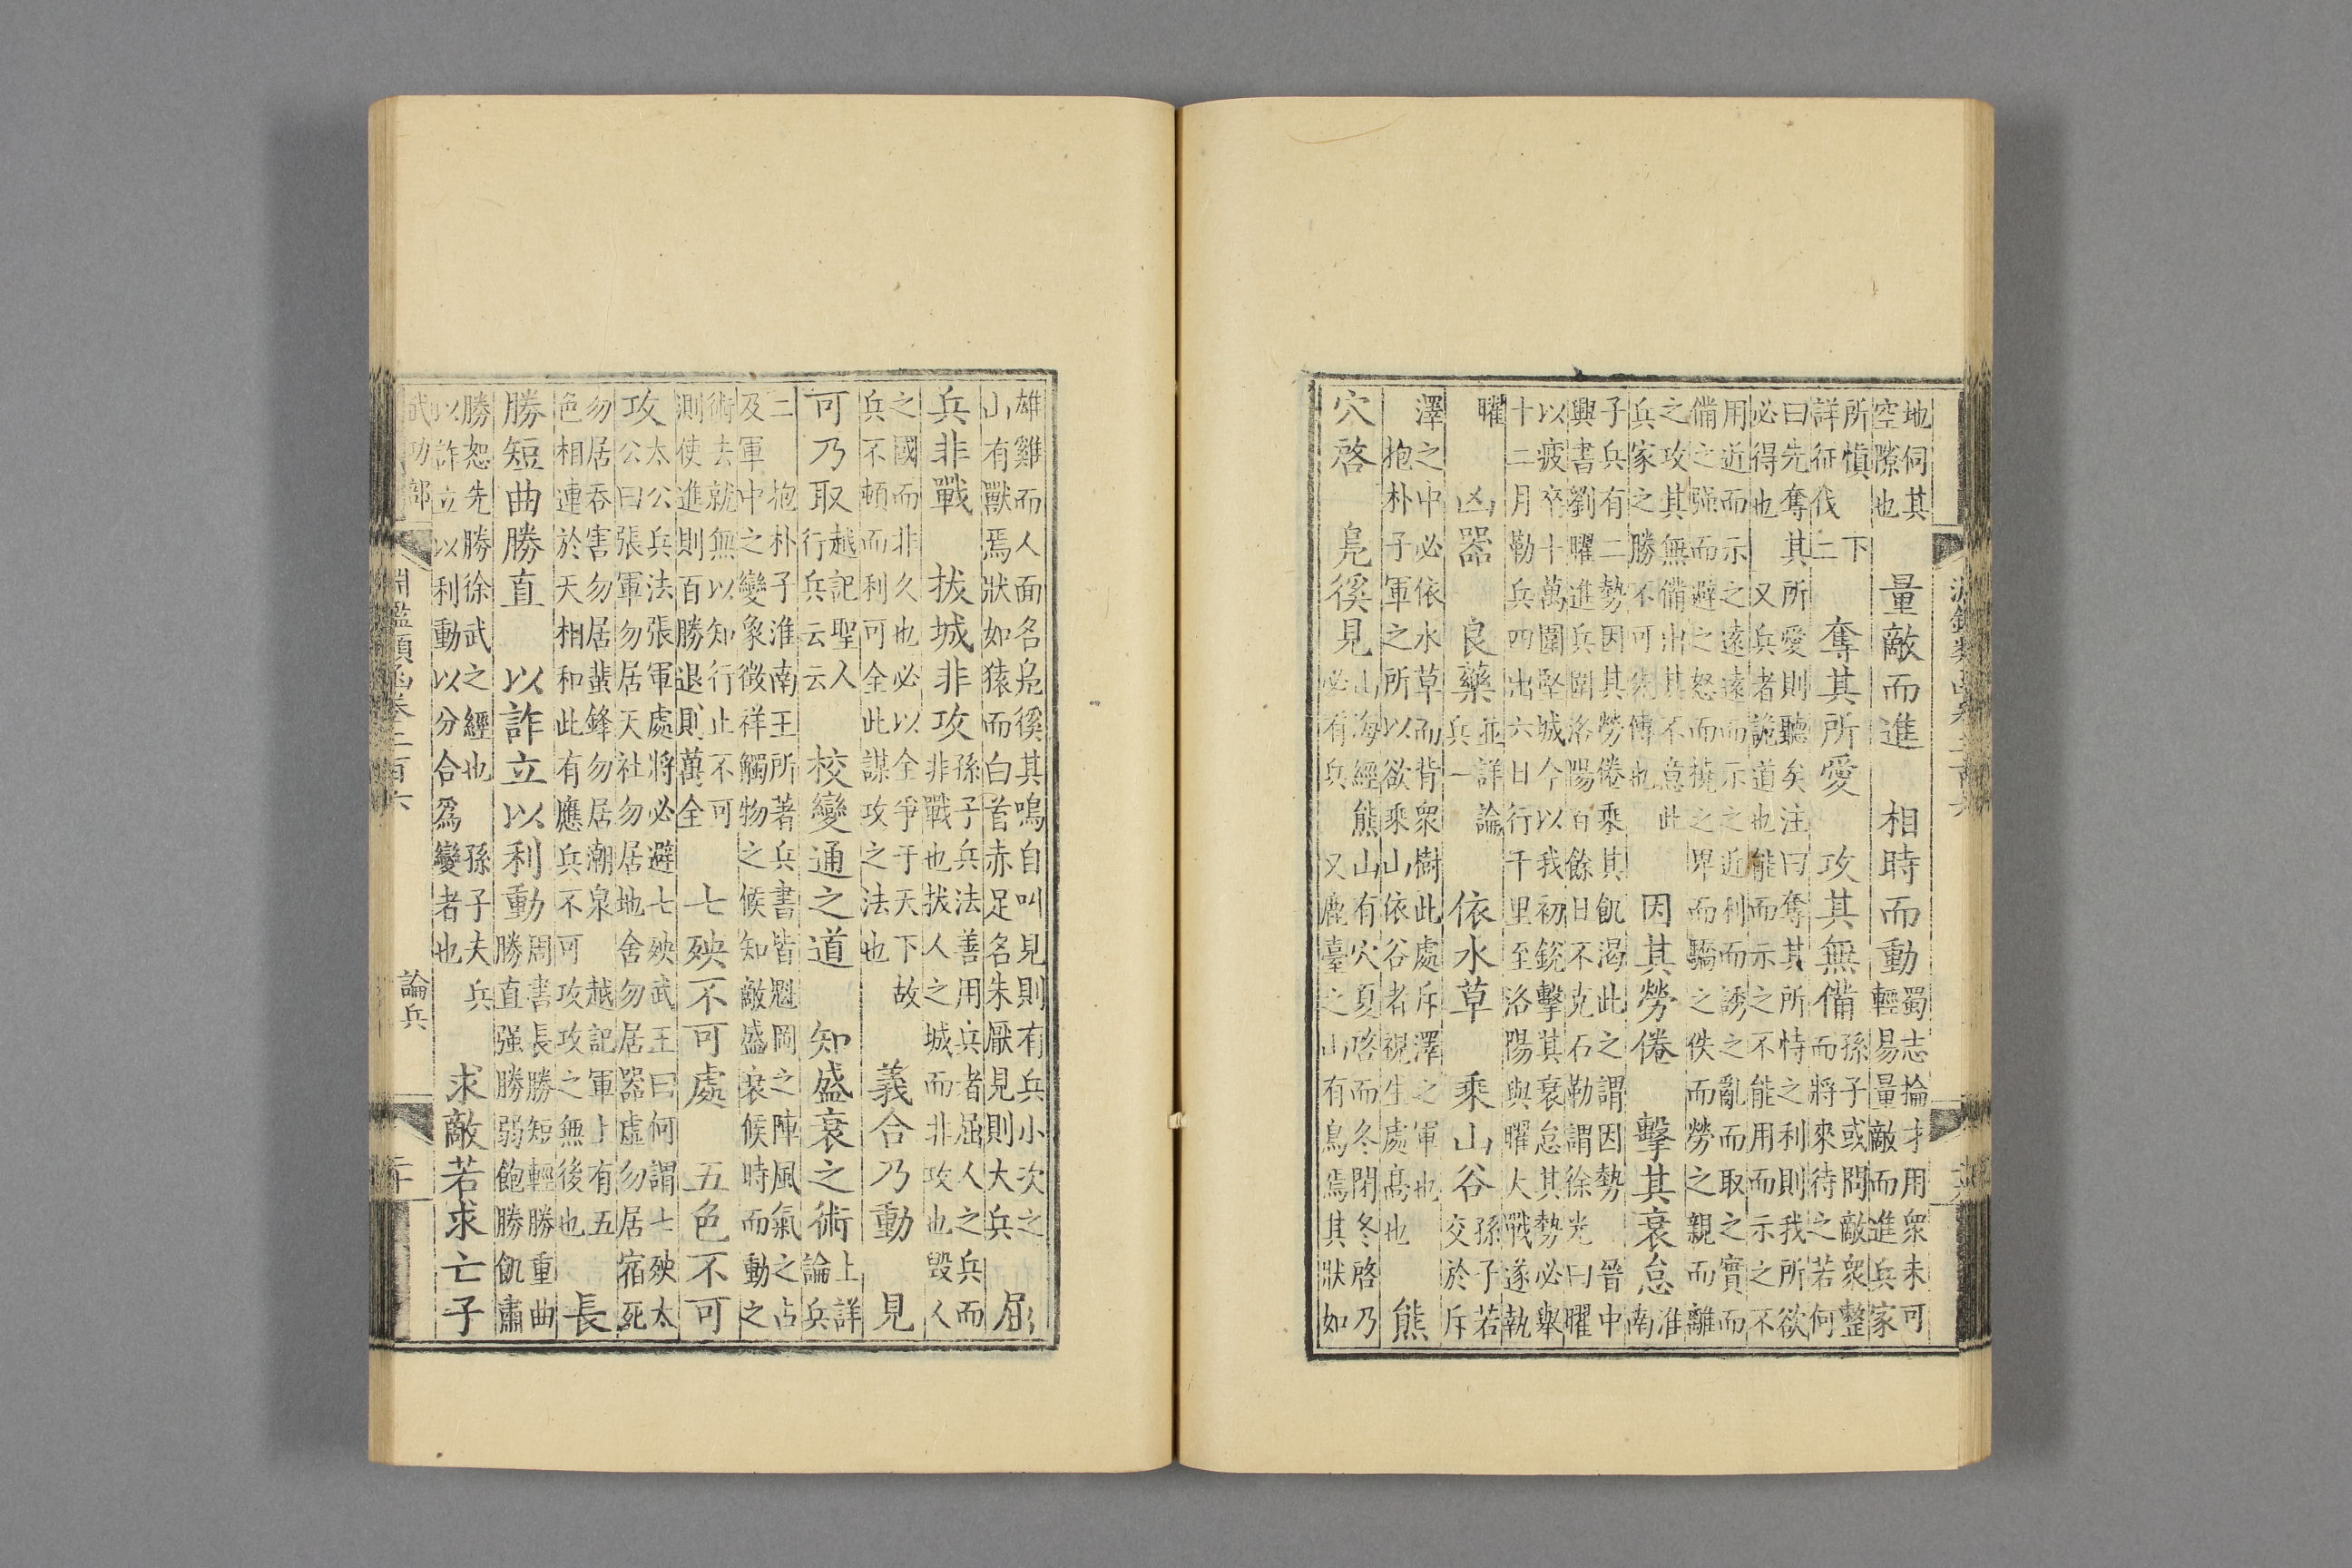 淵鑑類函卷二百六
地伺其
空隙也
量敵而進　相時而動
蜀志掄才用衆未可
輕易量敵而進兵家
所愼　下
詳征伐二
奪其所愛　攻其無備
孫子或問敵衆整
而將來待之若何
曰先奪其所愛則聽矣注曰奪其所恃之利則我所欲
必得也　又兵者詭道也能而示之不能用而示之不
用近而示之遠遠而示之近利而誘之亂而取之實而
備之强而避之怒而撓之卑而驕之佚而勞之親而離
之攻其無備出其不意此
兵家之勝不可先傳也
因其勞倦　擊其衰怠
淮
南
子兵有二勢因其勞倦乘其飢渴此之謂因勢　晉中
興書劉曜進兵圍洛陽百餘日不克石勒謂徐光曰曜
以疲卒十萬圍堅城今以我初銳擊其衰怠其勢必舉
十二月勒兵四出六日行千里至洛陽與曜大戰遂執
曜
凶器　良藥
並詳論
兵一
依水草　乘山谷
孫子若
交於斥
澤之中必依水草而背衆樹此處斥澤之軍也
抱朴子軍之所以欲乘山依谷者視生處高也
熊
穴啓　鳧徯見
山海經熊山有穴夏啓而冬閉冬啓乃
必有兵　又鹿臺之山有鳥焉其狀如
雄雞而人面名鳧徯其鳴自叫見則有兵小次之
山有獸焉狀如猿而白首赤足名朱厭見則大兵
屈
兵非戰　拔城非攻
孫子兵法善用兵者屈人之兵而
非戰也拔人之城而非攻也毀人
之國而非久也必以全爭于天下故
兵不頓而利可全此謀攻之法也
義合乃動　見
可乃取
越記聖人
行兵云云
校變通之道　知盛衰之術
上詳
論兵
二　抱朴子淮南王所著兵書皆魁岡之陣風氣之占
及軍中之變象徵祥觸物之候知敵盛衰候時而動之
術去就無以知行止不可
則使進則百勝退則萬全
七殃不可處　五色不可
攻
太公兵法張軍處將必避七殃武王曰何謂七殃太
公曰張軍勿居天社勿居地舍勿居器虛勿居宿死
勿居吞害勿居蜚鋒勿居潮泉　越記軍上有五
色相連於天相和此有應兵不可攻攻之無後也
長
勝短曲勝直　以詐立以利動
周書長勝短輕勝重曲
勝直强勝弱飽勝飢肅
勝恕先勝徐武之經也　孫子夫兵
以詐立以利動以分合爲變者也
求敵若求亡子
武功部　淵鑑類函卷二百六　論兵